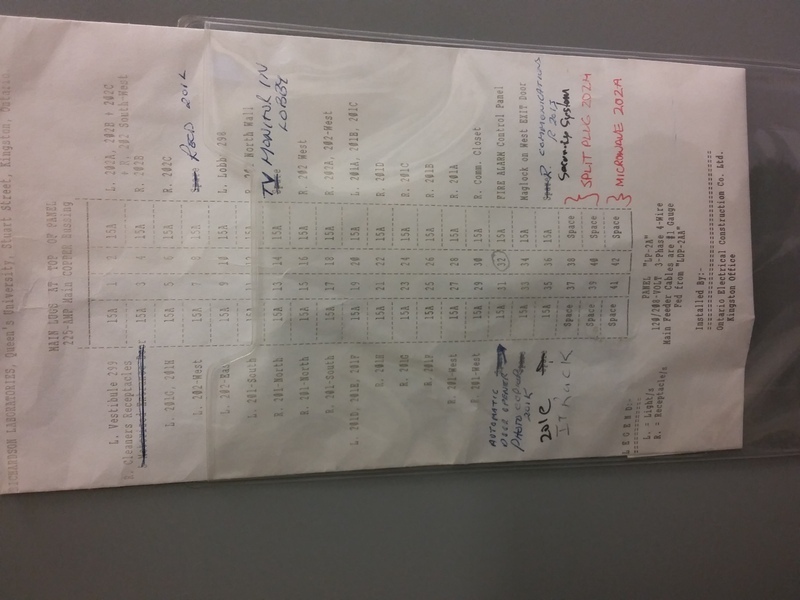 RICHARDSON LABORATORIES, Queen's University, Stuart Street, Kingston, Ontario.
MAIN LUGS AT TOP OF PANEL
225-AMP Main COPPER Bussing
L. Vestibule 299 15A 1 2 15A L. 202A, 202B + 202C
R. 202 South-West
R. Cleaners Receptacles 15A 3 4 15A R. 202B
L. 201G, 201H 15A 5 6 15A R. 202C
L. 202-West 15A 7 8 15A RECP 201L
L. 202-East 15A 9 10 15A L. Lobby 298
L. 201-South 15A 11 12 15A R. 202 North Wall
R. 201-North 15A 13 14 15A TV MONITOR IN
LOBBY
R. 201-North 15A 15 16 15A R. 202 West
R. 201-South 15A 17 18 15A R. 202A, 202-West
L. 201D, 201E, 201F 15A 19 20 15A L. 201A, 201B, 201C
R. 201H 15A 21 22 15A R. 201D
R. 201G 15A 23 24 15A R. 201C
R. 201F 15A 25 26 15A R. 201B
R. 201-West 15A 27 28 15A R. 201A
R. 201-West 15A 29 30 15A R. Comm. Closet
AUTOMATIC
DOOR OPENER 15A 31 32 15A FIRE ALARM Control Panel
PHOTO COPIER
201K 15A 33 34 15A Maglock on West EXIT Door
201E 15A 35 36 15A R. COMMUNICATIONS
R 201J
IT RACK Space 37 38 Space System
Space 39 40 Space SPLIT PLUG 202A
Space 41 42 Space MICROWAVE 202A
PANEL "LP-2A"
120/208-VOLT 3-Phase 4-Wire
Main Feeder Cables are #1 Gauge
Fed from "LDP-2AA"
LEGEND:-
L. = Light/s
R. = Receptacle/s
Installed By:-
Ontario Electrical Construction Co. Ltd.
Kingston Office